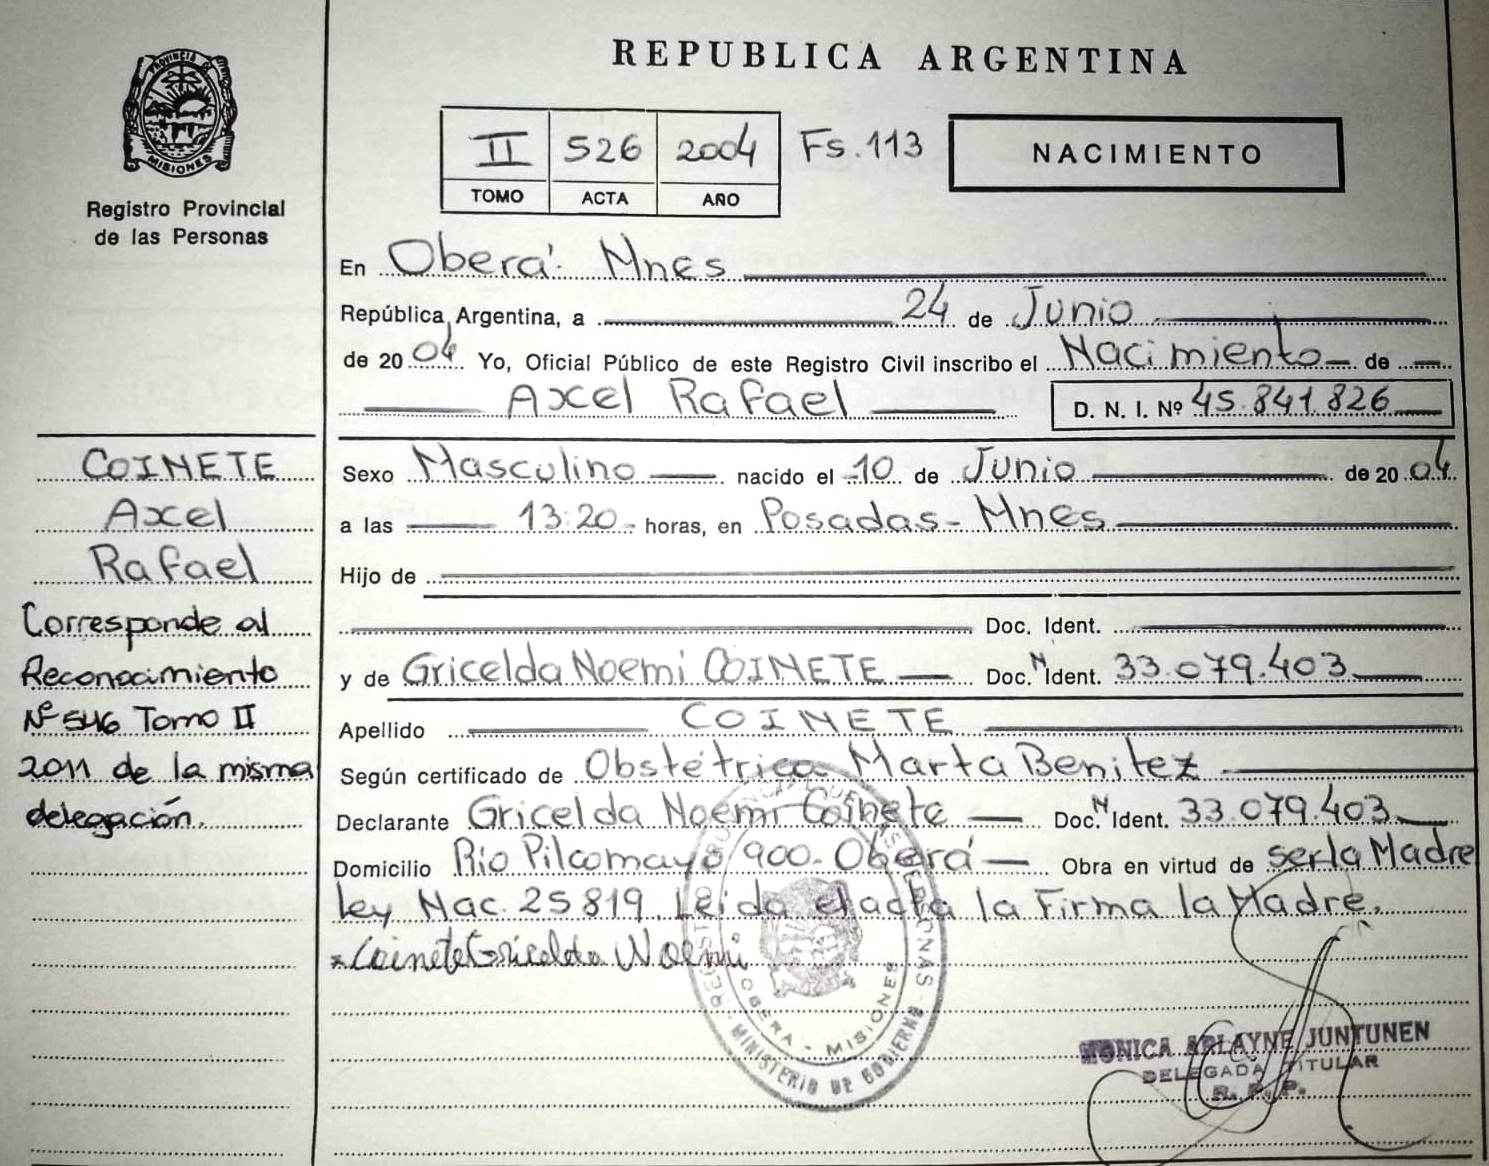 PROVINCIA DE
MISIONES
Registro Provincial
de las Personas
REPUBLICA ARGENTINA
II 526 2004 Fs. 113
TOMO ACTA AÑO
NACIMIENTO
En Oberá. Mnes
República Argentina, a 24 de Junio
de 2004 Yo, Oficial Público de este Registro Civil inscribo el Nacimiento de
Axel Rafael D. N. I. Nº 45.841.826
Sexo Masculino nacido el 10 de Junio de 2004
a las 13:20 horas, en Posadas - Mnes
Hijo de
Doc. Ident.
y de Gricelda Noemi COINETE Doc. N Ident. 33.079.403
Apellido COINETE
Según certificado de Obstétrica Marta Benitez
Declarante Gricelda Noemi Coinete Doc. N Ident. 33.079.403
Domicilio Rio Pilcomayo 900. Oberá Obra en virtud de ser la Madre
ley Nac. 25819. Leida el acta la Firma la Madre.
x Coinete Gricelda Noemi
COINETE
Axel
Rafael
Corresponde al
Reconocimiento
Nº 546 Tomo II
2011 de la misma
delegación.
OBERA - MISIONES
MINISTERIO DE GOBIERNO
MONICA ARLAYNE JUNTUNEN
DELEGADA TITULAR
R. P. P.